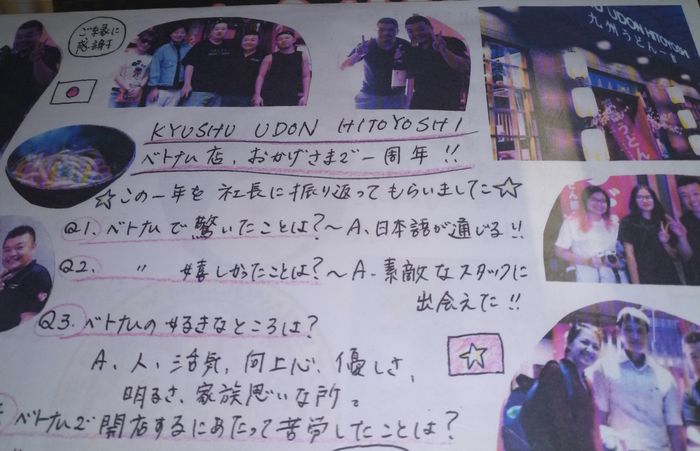 ご縁に
感謝!
UDON HITOYOSHI
九州うどん
うどん
KYUSHU UDON HITOYOSHI
ベトナム店、おかげさまで一周年!!
☆この一年を社長に振り返ってもらいました☆
Q1. ベトナムで驚いたことは?〜A、日本語が通じる!!
Q2. 〃 嬉しかったことは?〜A. 素敵なスタッフに
出会えた!!
Q3. ベトナムの好きなところは?
A、人、活気、向上心、優しさ、
明るさ、家族思いな所。
ベトナムで開店するにあたって苦労したことは?